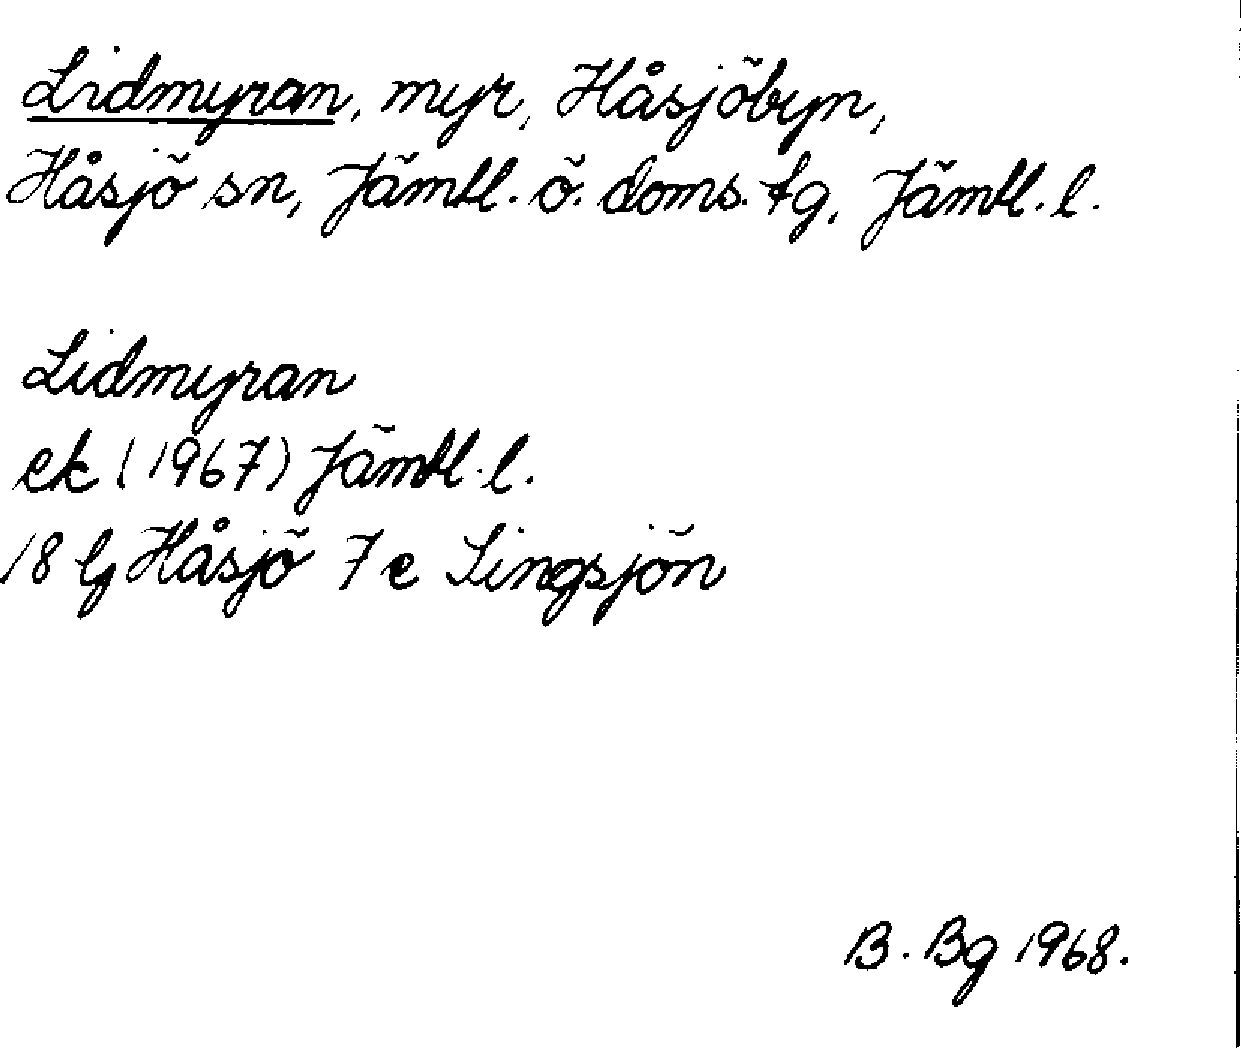 Lidmyran, myr, Håsjöbyn,
Håsjö sn, Jämtl. ö. doms. tg, Jämtl. l.
Lidmyran
ek (1967) Jämtl. l.
18 G Håsjö 7 e Singsjön
B. Bg 1968.